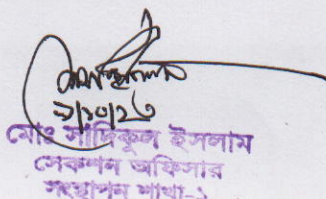 ৯/১০/২৩
মোঃ সাদিকুল ইসলাম
সেকশন অফিসার
সংস্থাপন শাখা-১